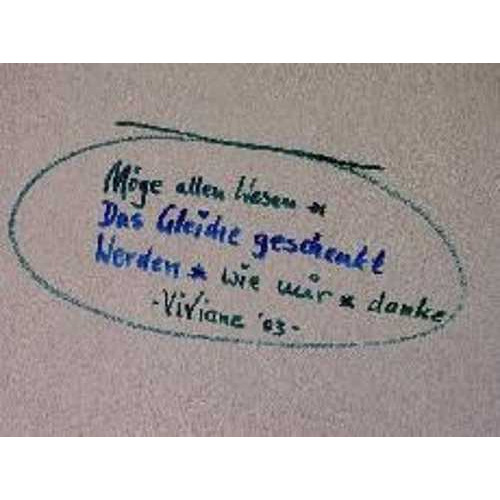 Möge allen Wesen *
Das Gleiche geschenkt
Werden * wie mir * danke
-Viviane '03-